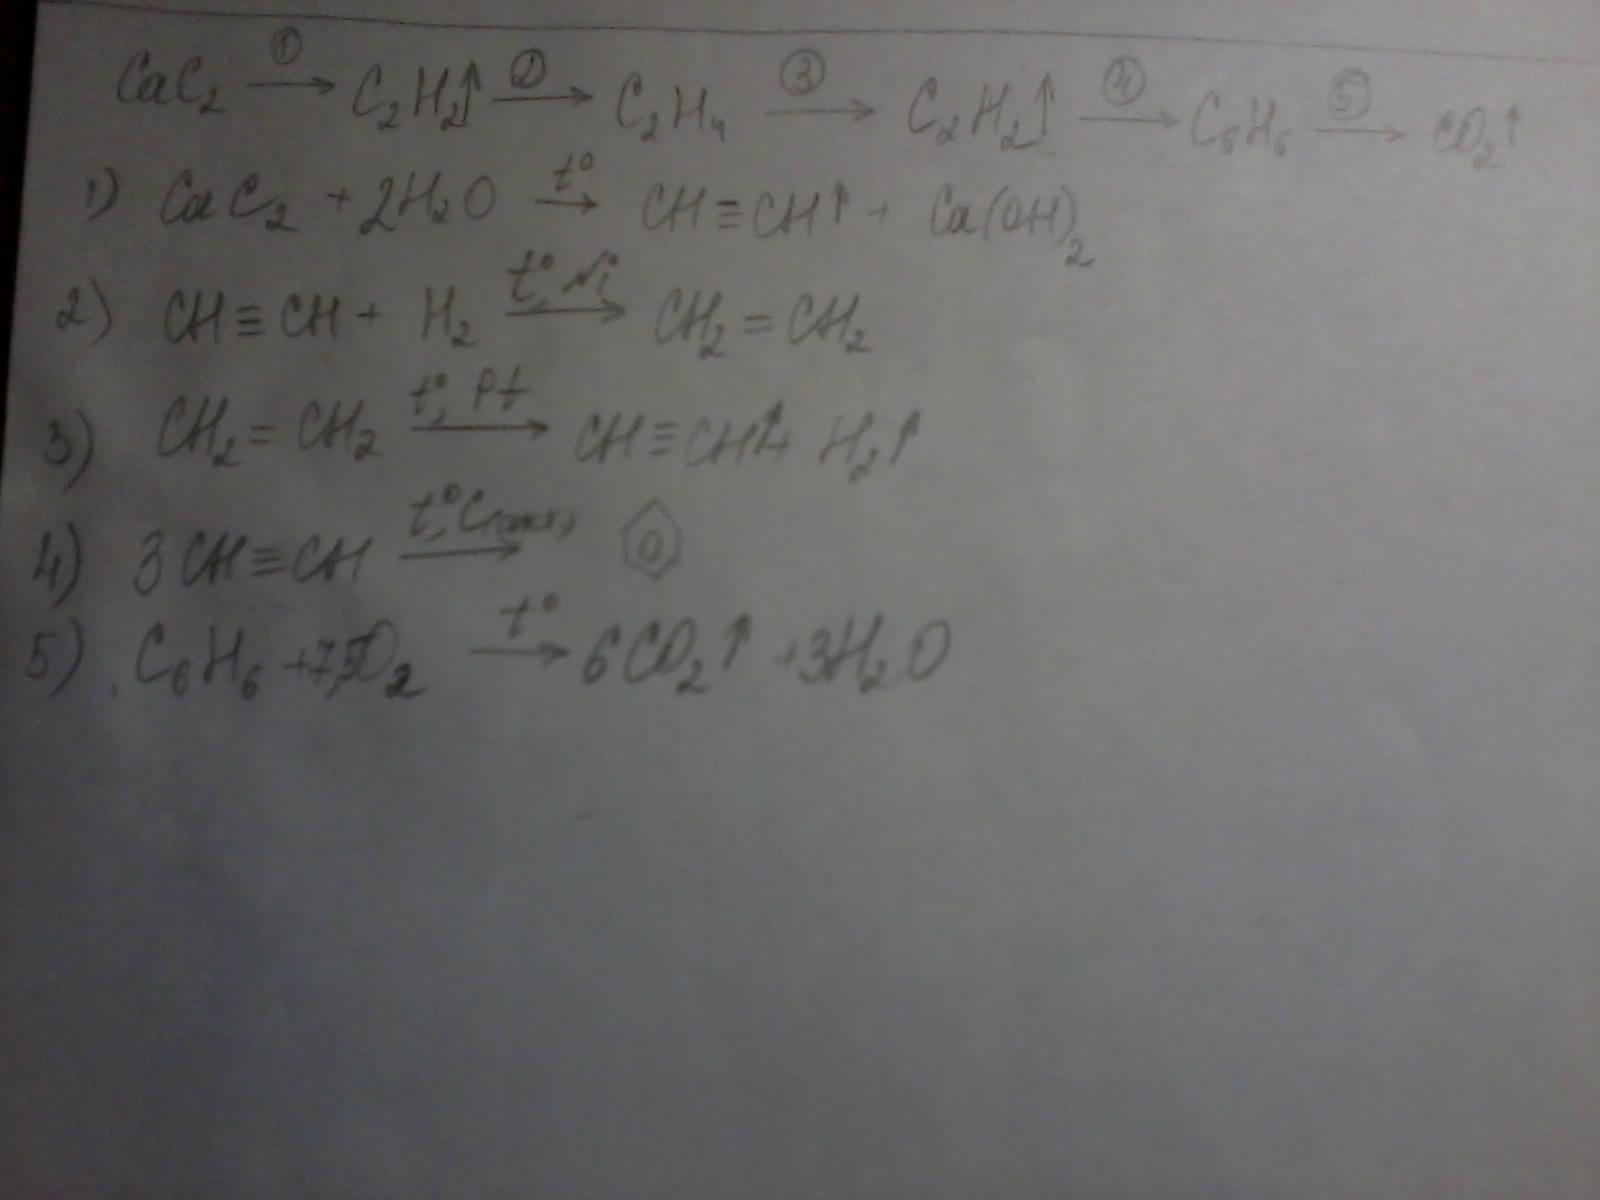 CaC₂ ①→ C₂H₂↑ ②→ C₂H₄ ③→ C₂H₂↑ ④→ C₆H₆ ⑤→ CO₂↑
1) CaC₂ + 2H₂O t°→ CH≡CH↑ + Ca(OH)₂
2) CH≡CH + H₂ t°, Ni→ CH₂=CH₂
3) CH₂=CH₂ t°, Pt→ CH≡CH↑ + H₂↑
4) 3CH≡CH t°, C(акт.)→
5) C₆H₆ + 7,5O₂ t°→ 6CO₂↑ + 3H₂O